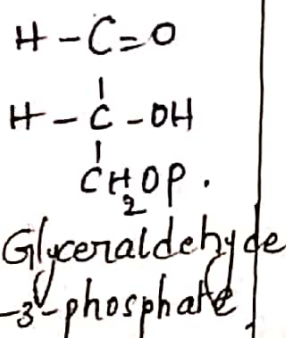 H-C=O
H-C-OH
CH2OP.
Glyceraldehyde
-3-phosphate